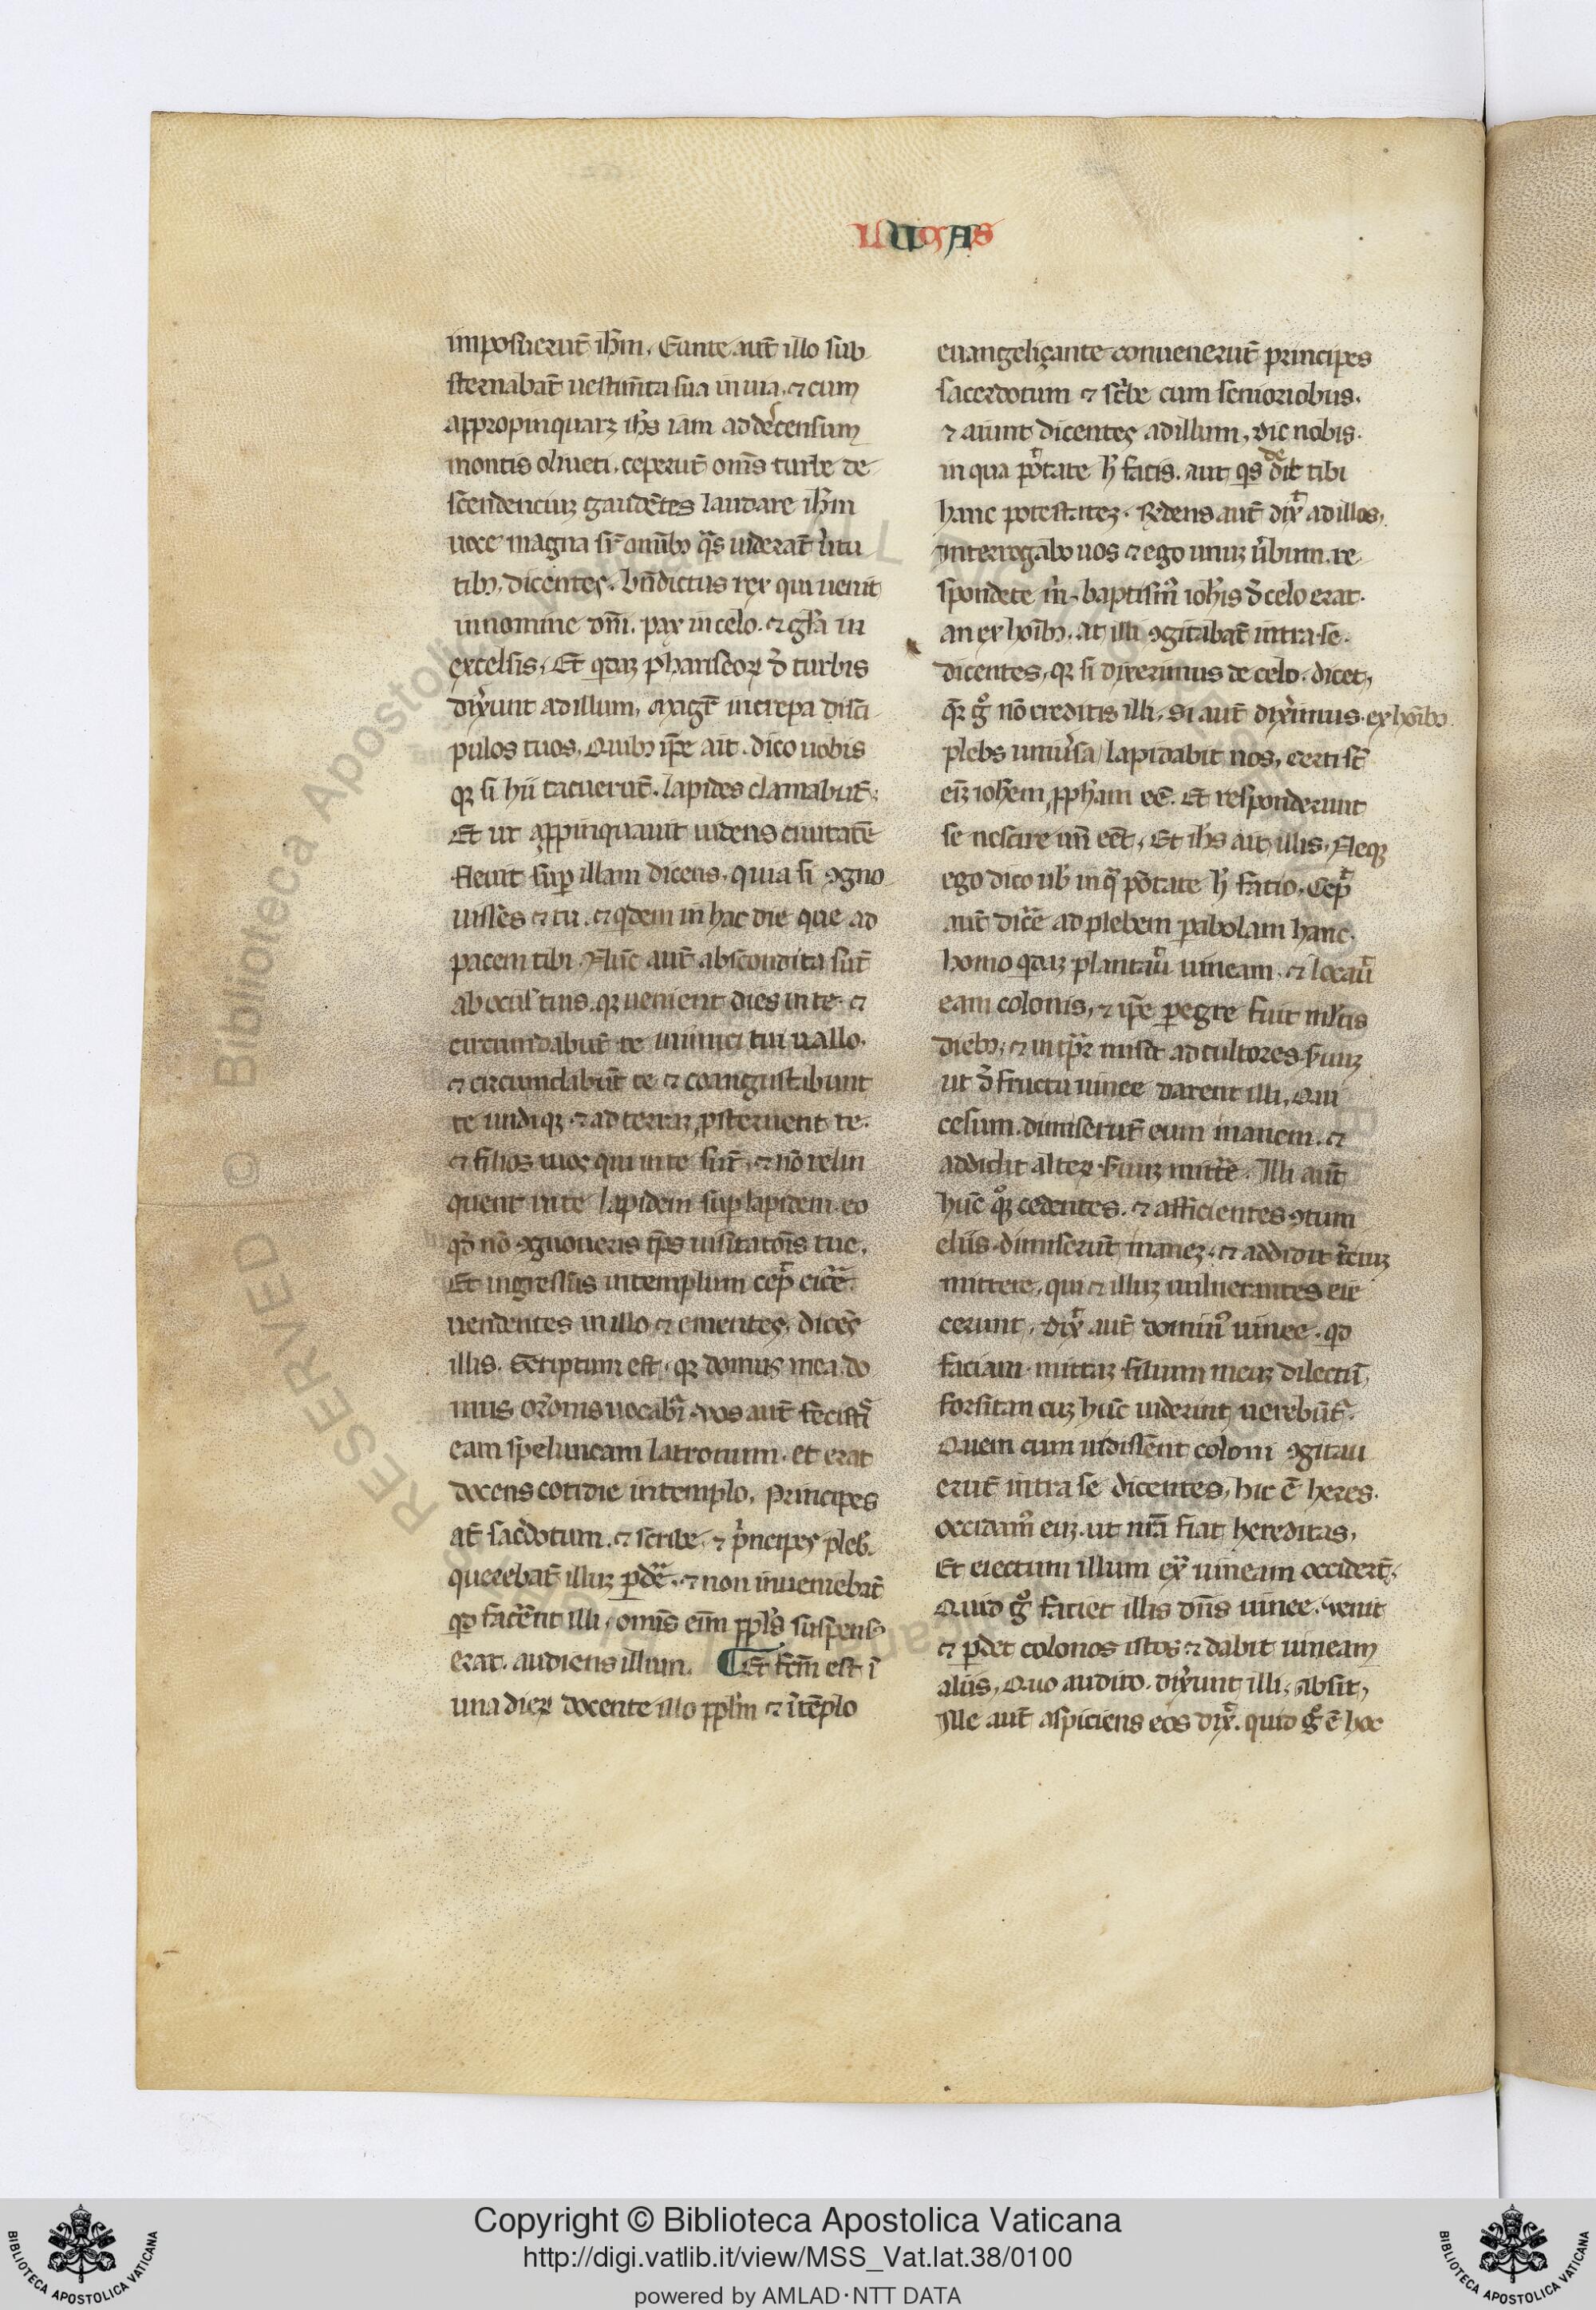 LUCAS
imposuerut̄ ih̄m. Eunte aut̄ illo sub
sternabāt uestim̄ta sua in uia. ⁊ cum
appropinquarꝫ ih̄s iam ad decensum
montis oliueti. ceperūt om̄s turbe de
scendenciuꝫ gaudētes laudare ih̄m
uoce magna sr̄ omībꝫ q̄s uiderāt ùitu
tibꝫ. dicentes. bn̄dictus rex qui uenit
in nomine dn̄i. pax in celo. ⁊ gl̄a in
excelsis. Et qdaꝫ phariseoꝝ d̄ turbis
dixùnt ad illum. magr̄ increpa disci
pulos tuos. Quibꝫ ip̄e ait. dico uobis
qꝫ si hii tacuerūt. lapides clamabūt.
Et ut aꝓpinquauit uidens ciuitatē
fleuit suꝑ illam dicens. quia si ꝯgno
uisses ⁊ tu. ⁊ qdem in hac die que ad
pacem tibi. Nūc aut̄ abscondita sūt
ab oculis tuis. qꝫ uenient dies in te. ⁊
circumdabūt te inimici tui uallo.
⁊ circumdabūt te ⁊ coangustabunt
te undiqꝫ. ⁊ ad terraꝫ ꝓsternent te.
⁊ filios tuos qui in te sūt. ⁊ nō relin
quent in te lapidem suꝑ lapidem. eo
qd̄ nō ꝯgnoueris tp̄s uisitatōis tue.
Et ingressus in templum cep̄ eicēre
uendentes in illo ⁊ ementes. dicēs
illis. Scriptum est. qꝫ domus mea do
mus or̄onis uocabr̄. uos aut̄ fecistis
eam speluncam latronum. et erat
docens cotidie in templo. Principes
at̄ sac̄dotum. ⁊ scribe. ⁊ pⁱncipes pleb.
querebāt illuꝫ ꝑdēre. ⁊ non inueniebāt
qd facērēt illi. omīs eīm ppl̄s suspensꝰ
erat. audiens illum. ¶ Et fcm̄ est ī
una dieꝝ docente illo ppl̄m ⁊ ī tēplo
euangeliçante conuenerūt principes
sacerdotum ⁊ scⁱbe cum senioriobus.
⁊ aiunt dicentes ad illum. dic nobis.
in qua ptāte h̄ facis. aut qⁱs dedit tibi
hanc potestateꝫ. Rn̄dens aut̄ dix̄ ad illos.
Interrogabo uos ⁊ ego unuꝫ ùbum. re
spondete m̄. baptism̄ ioh̄is d̄ celo erat.
an ex hoībꝫ. at illi ꝯgitabāt intra se.
dicentes. qꝫ si dixerimus de celo. dicet.
q̄r gͦ nō creditis illi. Si aut̄ dixùimus. ex hoībꝫ
plebs uniùsa lapidabit nos. certi st̄
eīꝫ ioh̄em ꝓph̄am eē. Et responderunt
se nescire un̄ eēt. Et ih̄s ait illis. Neqꝫ
ego dico uob̄ in qᵃ ptāte h̄ facio. Cep̄
aut̄ dicēre ad plebem ꝑabolam hanc.
homo qdaꝫ plantaū uineam. ⁊ locaū
eam colonis. ⁊ ip̄e ꝑegre fuit ml̄tis
diebꝫ. ⁊ in tp̄r misit ad cultores suuꝫ
ut d̄ fructu uinee darent illi. Qui
cesum. dimiserūt eum inanem. ⁊
addidit alteꝝ fuuꝫ mittēre. Illi aut̄
hūc qͦꝫ cedentes. ⁊ afficientes ꝯtum
eliis. dimiserūt inaneꝫ. ⁊ addidit tēiuꝫ
mittere. qui ⁊ illuꝫ uulnerantes eie
cerunt. dix̄ aut̄ dominꝰ uinee. qd
faciam. mittaꝫ filium meuꝫ dilectū.
forsitan cuꝫ hūc uiderint uerebūt̄.
Quem cum uidissent coloni ꝯgitau
erūt intra se dicentes. hic ē heres.
occidamꝰ euꝫ. ut nr̄a fiat hereditas.
Et eiectum illum exᵃ uineam occiderūt.
Quid gͦ faciet illis dn̄s uinee. Venit
⁊ ꝑdet colonos istos ⁊ dabit uineam
aliis. Quo audito. dixùnt illi. absit.
Ille aut̄ aspiciens eos dix̄. quid gͦ ē hoc
© Biblioteca Apostolica Vaticana
Copyright © Biblioteca Apostolica Vaticana
http://digi.vatlib.it/view/MSS_Vat.lat.38/0100
powered by AMLAD·NTT DATA
BIBLIOTECA APOSTOLICA VATICANA
BIBLIOTECA APOSTOLICA VATICANA